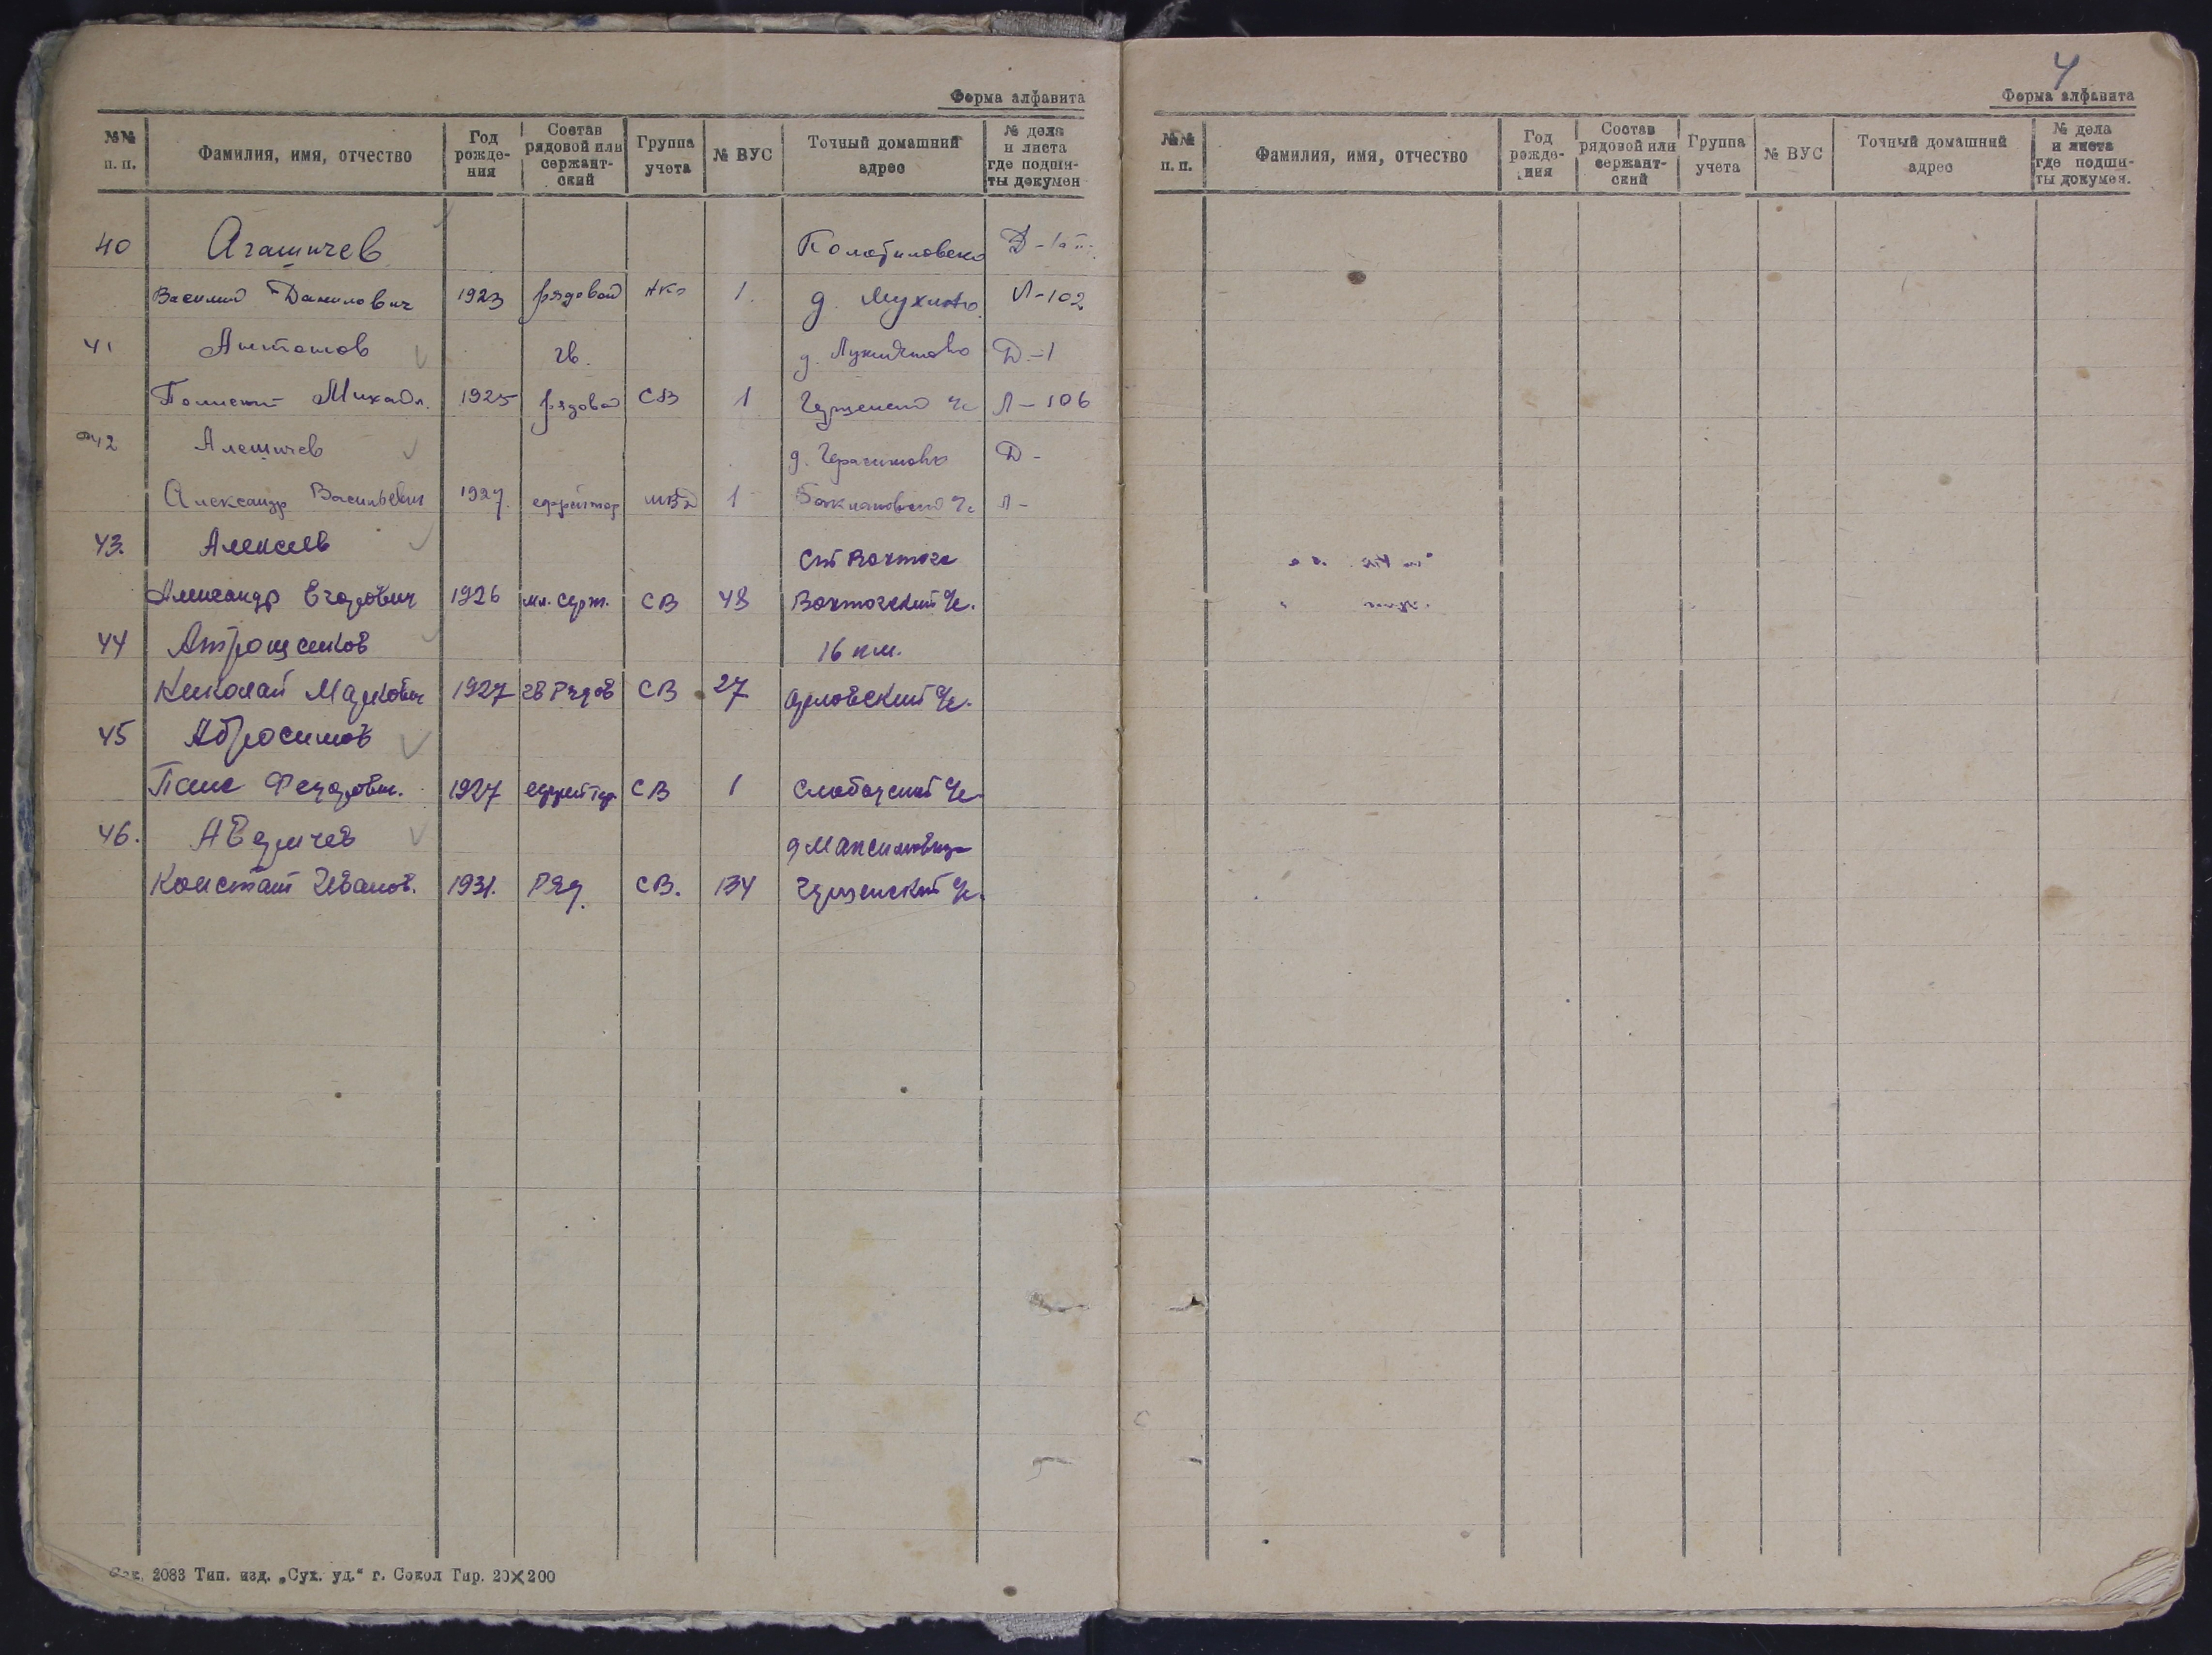 Форма алфавита
№№ п. п. Фамилия, имя, отчество Год рожде- ния Состав рядовой или сержант- ский Группа учета № ВУС Точный домашний адрес № дела и листа где подши- ты докумен
40 Агашичев Д-1
Василий Данилович 1923 рядовой 1. д. Л-102
41 Антошов гв. д. Д-1
Михайл. 1925 рядовой СВ 1 Л-106
42 Алешичев д. Герасимово Д-
Александр Васильевич 1927. ефрейтор МВД 1 Баклановский Л-
43. Алексеев Вохтога
Александр Егорович 1926 мл. серж. СВ 48 Вохтогский
44 Атрощенков 16 км.
Николай Маркович 1927 гв Рядов СВ 27 Орловский
45 Абросимов
Федорович. 1927 ефрейтор СВ 1 Слободской
46. Аверичев д
Констант Иванов. 1931. Ряд. СВ. 134
2083 Тип. изд. „Сух. уд.“ г. Сокол Тир. 20×200
4
Форма алфавита
№№ п. п. Фамилия, имя, отчество Год рожде- ния Состав рядовой или сержант- ский Группа учета № ВУС Точный домашний адрес № дела и листа где подши- ты докумен.